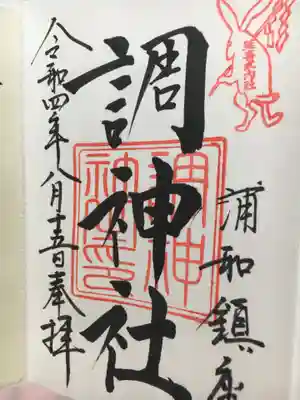 延喜式内社
浦和鎮座
調神社
調神
社之印
令和四年八月十五日奉拝